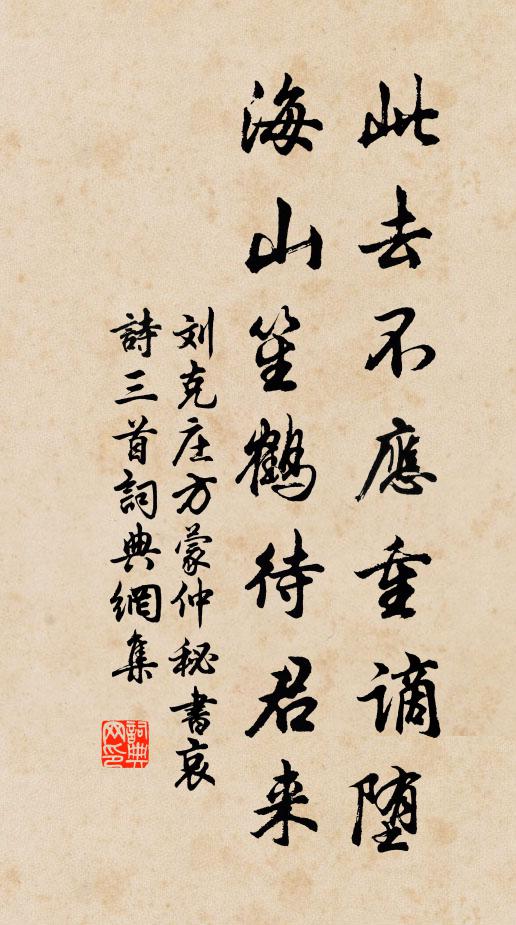 此去不應重謫堕
海山笙鶴待君来
刘克庄方蒙仲秘書哀
詩三首詞典網集
詞典网印